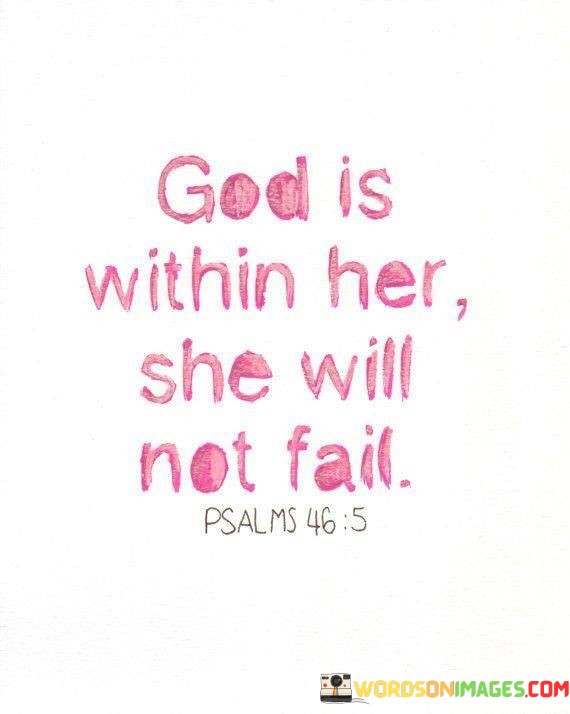 God is
within her,
she will
not fail.
PSALMS 46:5
WORDSONIMAGES.COM